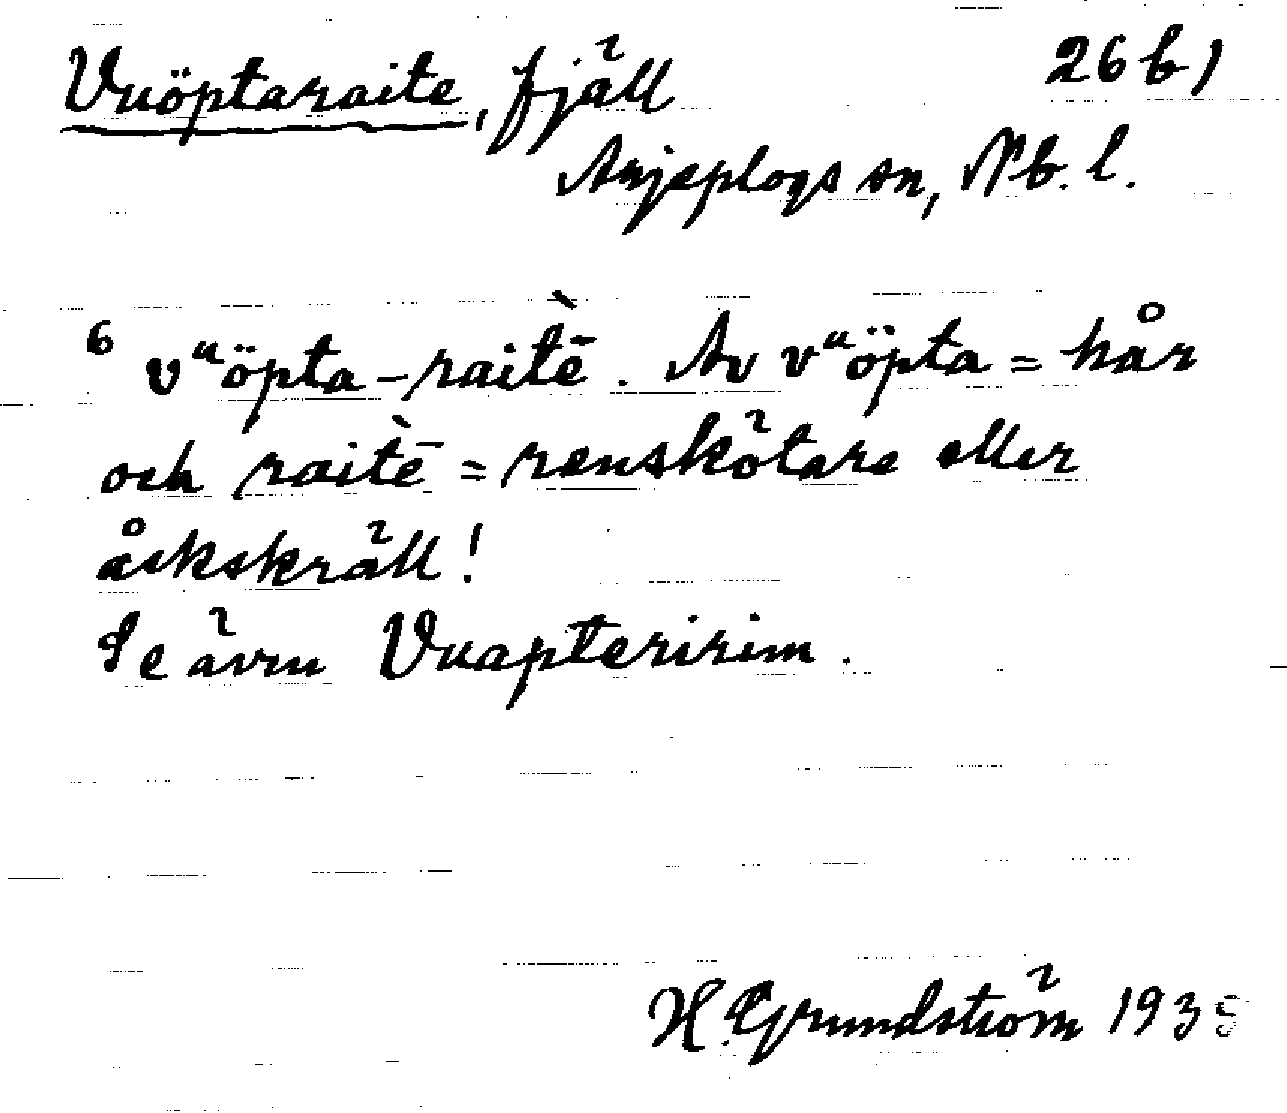 Vuöptaraite, fjäll 26 b)
Arjeplogs sn, Nb. l.
6 vᵘöpta-raitḕ. Av vᵘöpta = hår
och raitḕ = renskötare eller
åskskräll!
Se även Vuapteririm.
H. Grundström 1935